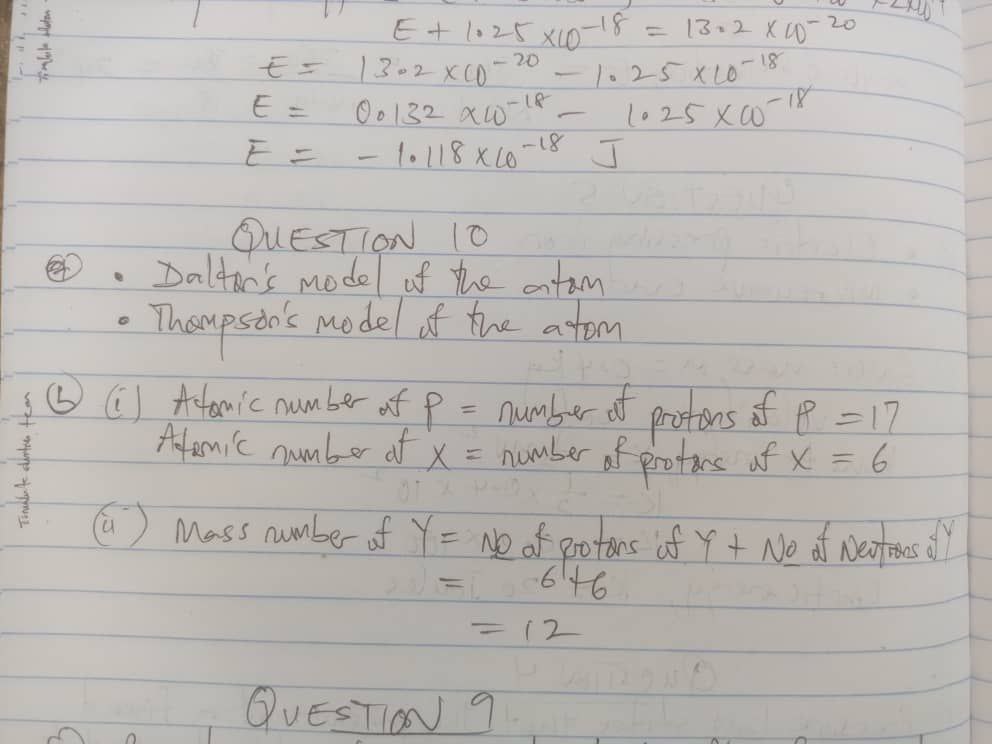 E + 1.25 ×10⁻¹⁸ = 13.2 ×10⁻²⁰
E = 13.2 ×10⁻²⁰ – 1.25 ×10⁻¹⁸
E = 0.132 ×10⁻¹⁸ – 1.25 ×10⁻¹⁸
E = – 1.118 ×10⁻¹⁸ J
QUESTION 10
a) • Dalton's model of the atom
• Thompson's model of the atom
(b) (i) Atomic number of P = number of protons of P = 17
Atomic number of X = number of protons of X = 6
(ii) Mass number of Y = No of protons of Y + No of Neutrons of Y
= 6+6
= 12
QUESTION 9